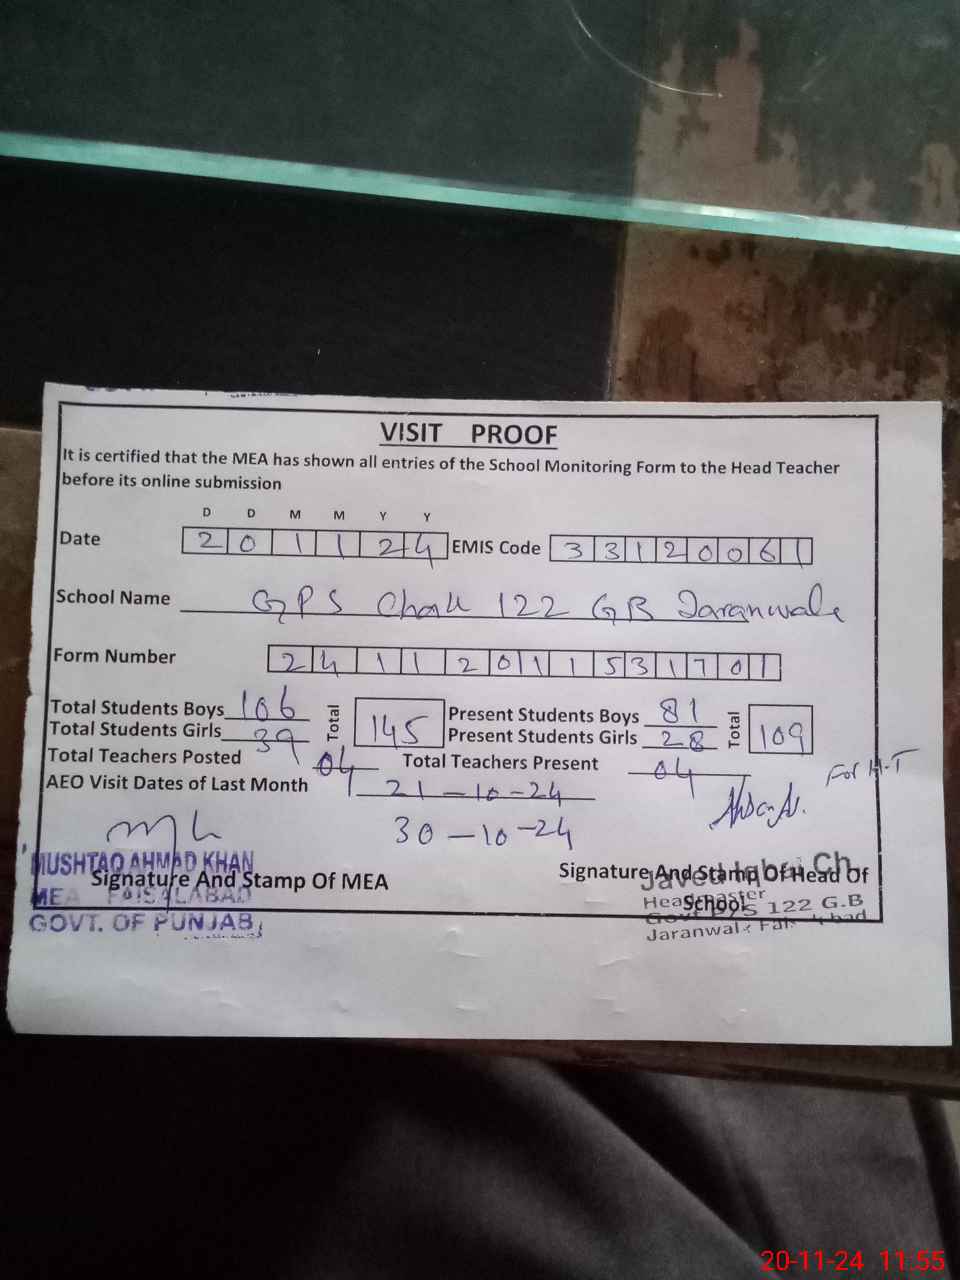 VISIT PROOF
It is certified that the MEA has shown all entries of the School Monitoring Form to the Head Teacher
before its online submission
D D M M Y Y
Date 2 0 1 1 2 4 EMIS Code 3 3 1 2 0 0 6 1
School Name GPS Chak 122 GB Jaranwala
Form Number 2 4 1 1 2 0 1 1 5 3 1 7 0 1
Total Students Boys 106 Total 145 Present Students Boys 81 Total 109
Total Students Girls 39 Present Students Girls 28
Total Teachers Posted 04 Total Teachers Present 04
For H.T
AEO Visit Dates of Last Month 21-10-24
30-10-24
MUSHTAQ AHMAD KHAN
MEA FAISALABAD
GOVT. OF PUNJAB
Signature And Stamp Of MEA
Signature And Stamp Of Head Of
School
Javed Iqbal Ch.
Headmaster
Govt 122 G.B
Jaranwala
20-11-24 11:55